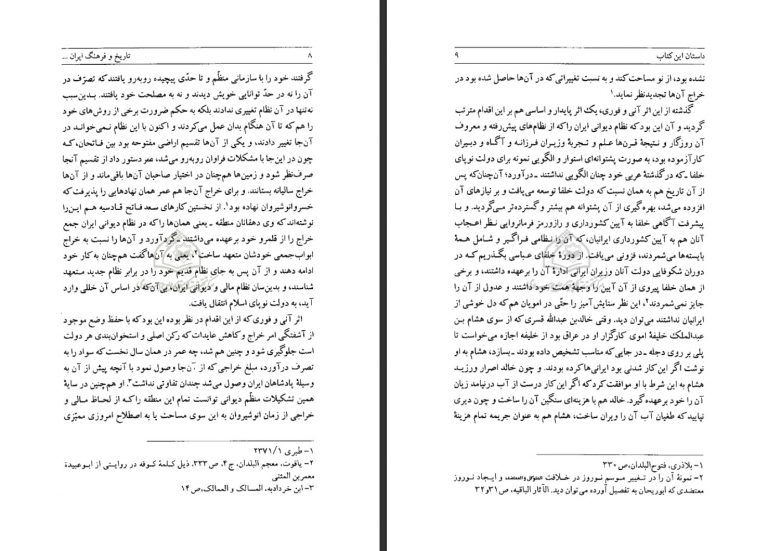 ۸ تاریخ و فرهنگ ایران ...
گرفتند خود را با سازمانی منظّم و تا حدّی پیچیده روبه‌رو یافتند که تصرّف در
آن را نه در حدّ توانایی خویش دیدند و نه به مصلحت خود یافتند. بدین‌سبب
نه‌تنها در آن نظام تغییری ندادند بلکه به حکم ضرورت برخی از روش‌های خود
را هم که تا آن هنگام بدان عمل می‌کردند و اکنون با این نظام نمی‌خواند در
آن‌جا تغییر دادند، و یکی از آن‌ها تقسیم اراضی مفتوحه بود بین فاتحان، که
چون در این‌جا با مشکلات فراوان روبه‌رو می‌شد، عمر دستور داد از تقسیم آنجا
صرف‌نظر شود و زمین‌ها هم‌چنان در اختیار صاحبان آن‌ها باقی‌ماند و از آن‌ها
خراج سالیانه بستانند. و برای خراج آن‌جا هم عمر همان نهادهایی را پذیرفت که
خسروانوشیروان نهاده بود¹. از نخستین کارهای سعد فاتح قادسیه هم این‌را
نوشته‌اند که وی دهقانان منطقه ـ یعنی همان‌ها را که در نظام دیوانی ایران جمع
خراج را از قلمرو خود برعهده می‌داشتند ـ گردآورد و آن‌ها را نسبت به خراج
ابواب‌جمعی خودشان متعهد ساخت²، یعنی به آن‌ها گفت هم‌چنان به کار خود
ادامه دهند و از آن پس به جای نظام قدیم خود را در برابر نظام جدید متعهد
شناسند، و بدین‌سان نظام مالی و دیوانی ایران، بی‌آن‌که در اساس آن خللی وارد
آید، به دولت نوپای اسلام انتقال یافت.
اثر آنی و فوری که از این اقدام در نظر بوده این بود که با حفظ وضع موجود
از آشفتگی امر خراج و کاهش عایدات که رکن اصلی و استخوان‌بندی هر دولت
است جلوگیری شود و چنین هم شد، چه عمر در همان سال نخست که سواد را به
تصرف درآورد، مبلغ خراجی که از آن‌جا وصول نمود با آنچه پیش از آن به
وسیلهٔ پادشاهان ایران وصول می‌شد چندان تفاوتی نداشت³. او هم‌چنین در سایهٔ
همین تشکیلات منظّم دیوانی توانست تمام این منطقه را که از لحاظ مالی و
خراجی از زمان انوشیروان به این سوی مساحت یا به اصطلاح امروزی ممیّزی
۱- طبری ۲۳۷۱/۱
۲- یاقوت، معجم البلدان، ج۴، ص۳۳۳، ذیل کلمهٔ کوفه در روایتی از ابوعبیدة
معمربن المثنی
۳- ابن خردادبه، المسالک و الممالک، ص۱۴
داستان این کتاب ۹
نشده بود، از نو مساحت کند و به نسبت تغییراتی که در آن‌ها حاصل شده بود در
خراج آن‌ها تجدیدنظر نماید.¹
گذشته از این اثر آنی و فوری، یک اثر پایدار و اساسی هم بر این اقدام مترتب
گردید و آن این بود که نظام دیوانی ایران را که از نظام‌های پیش‌رفته و معروف
آن روزگار و نتیجهٔ قرن‌ها علم و تجربهٔ وزیران فرزانه و آگاه و دبیران
کارآزموده بود، به صورت پشتوانه‌ای استوار و الگویی نمونه برای دولت نوپای
خلفا ـ که درگذشتهٔ عربی خود چنان الگویی نداشتند ـ درآورد؛ آن‌چنان‌که پس
از آن تاریخ هم به همان نسبت که دولت خلفا توسعه می‌یافت و بر نیازهای آن
افزوده می‌شد، بهره‌گیری از آن پشتوانه هم بیشتر و گسترده‌تر می‌گردید. و با
پیشرفت آگاهی خلفا به آیین کشورداری و رازورمز فرمانروایی نظر اعجاب
آنان هم به آیین کشورداری ایرانیان، که آن را نظامی فراگیر و شامل همهٔ
بایسته‌ها می‌شمردند، فزونی می‌یافت. از دورهٔ خلفای عباسی بگذریم که در
دوران شکوفایی دولت آنان وزیران ایرانی ادارهٔ آن را برعهده داشتند، و برخی
از همان خلفا پیروی از آن آیین را وجههٔ همت خود داشتند و عدول از آن را
جایز نمی‌شمردند²، این نظر ستایش‌آمیز را حتّی در امویان هم که دل خوشی از
ایرانیان نداشتند می‌توان دید. وقتی خالدبن عبدالله قسری که از سوی هشام بن
عبدالملک خلیفهٔ اموی کارگزار او در عراق بود از خلیفه اجازه می‌خواست تا
پلی بر روی دجله ـ در جایی که مناسب تشخیص داده بودند ـ بسازد، هشام به او
نوشت اگر این کار شدنی بود ایرانی‌ها کرده بودند. و چون خالد اصرار ورزید
هشام به این شرط با او موافقت کرد که اگر این کار درست از آب درنیامد زیان
آن را خود برعهده گیرد. خالد هم با هزینه‌ای سنگین آن را ساخت و چون دیری
نپایید که طغیان آب آن را ویران ساخت، هشام هم به عنوان جریمه تمام هزینهٔ
۱- بلاذری، فتوح‌البلدان، ص ۳۳۰
۲- نمونهٔ آن را در تغییر موسم نوروز در خلافت و ایجاد نوروز
معتضدی که ابوریحان به تفصیل آورده می‌توان دید. الآثار الباقیه، ص۳۱و۳۲